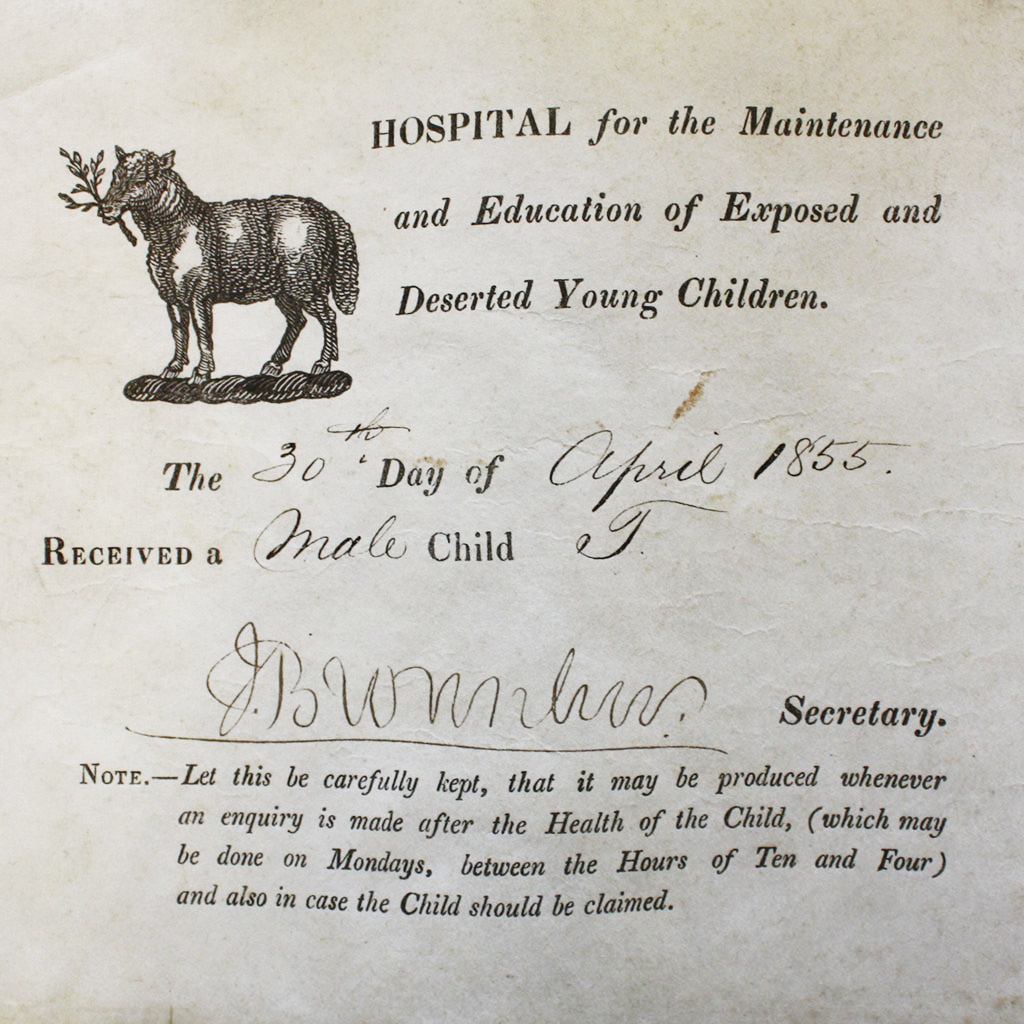 HOSPITAL for the Maintenance
and Education of Exposed and
Deserted Young Children.
The 30th Day of April 1855.
RECEIVED a Male Child T.
J. Brownlow. Secretary.
NOTE.—Let this be carefully kept, that it may be produced whenever
an enquiry is made after the Health of the Child, (which may
be done on Mondays, between the Hours of Ten and Four)
and also in case the Child should be claimed.